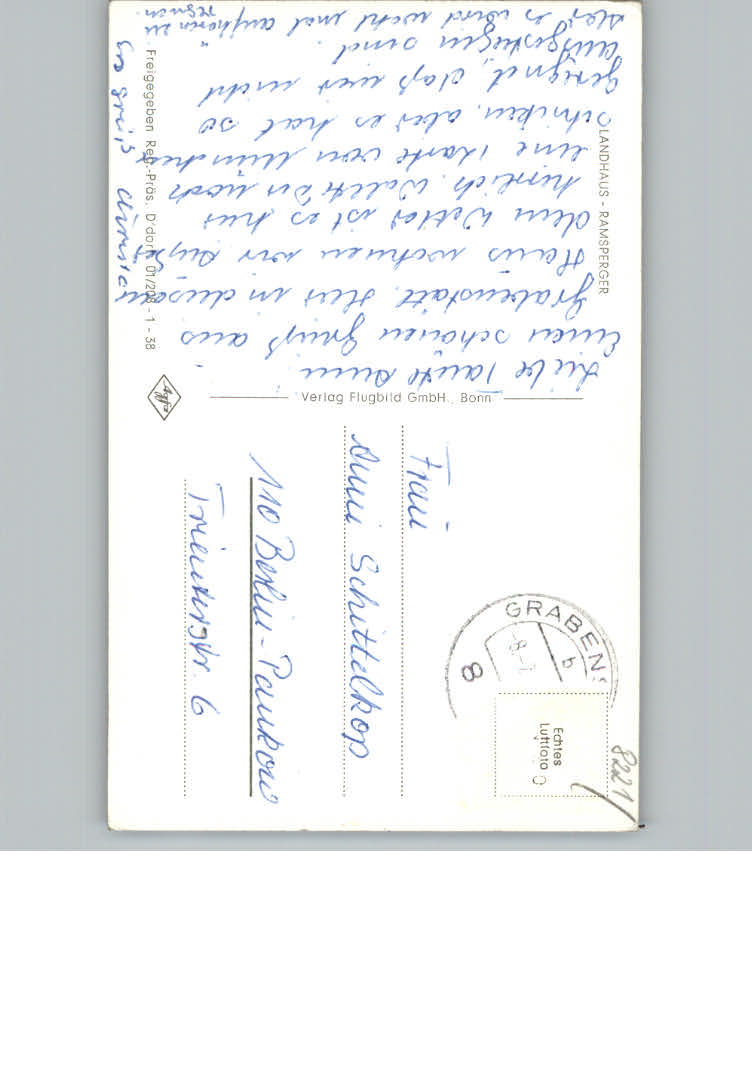 LANDHAUS - RAMSPERGER
Liebe Tante Anni
Einen schönen Gruß aus
Grabenstätt. Hier in diesem
Haus wohnen wir. Außer
dem Wetter ist es hier
herrlich. Wollte Dir noch
eine Karte von München
schicken, aber es hat so
geregnet, daß wir nicht
ausgestiegen sind.
Na, es wird wohl mal aufhören zu
regnen.
Es grüßt Christa
Freigegeben Reg.-Präs. D'dorf 01/208 - 1 - 38
Verlag Flugbild GmbH., Bonn
Agfa
Frau
Anni Schittelkop
110 Berlin-Pankow
Trienterstr. 6
GRABENS
8
-8.-7
b
Echtes
Luftfoto
8221